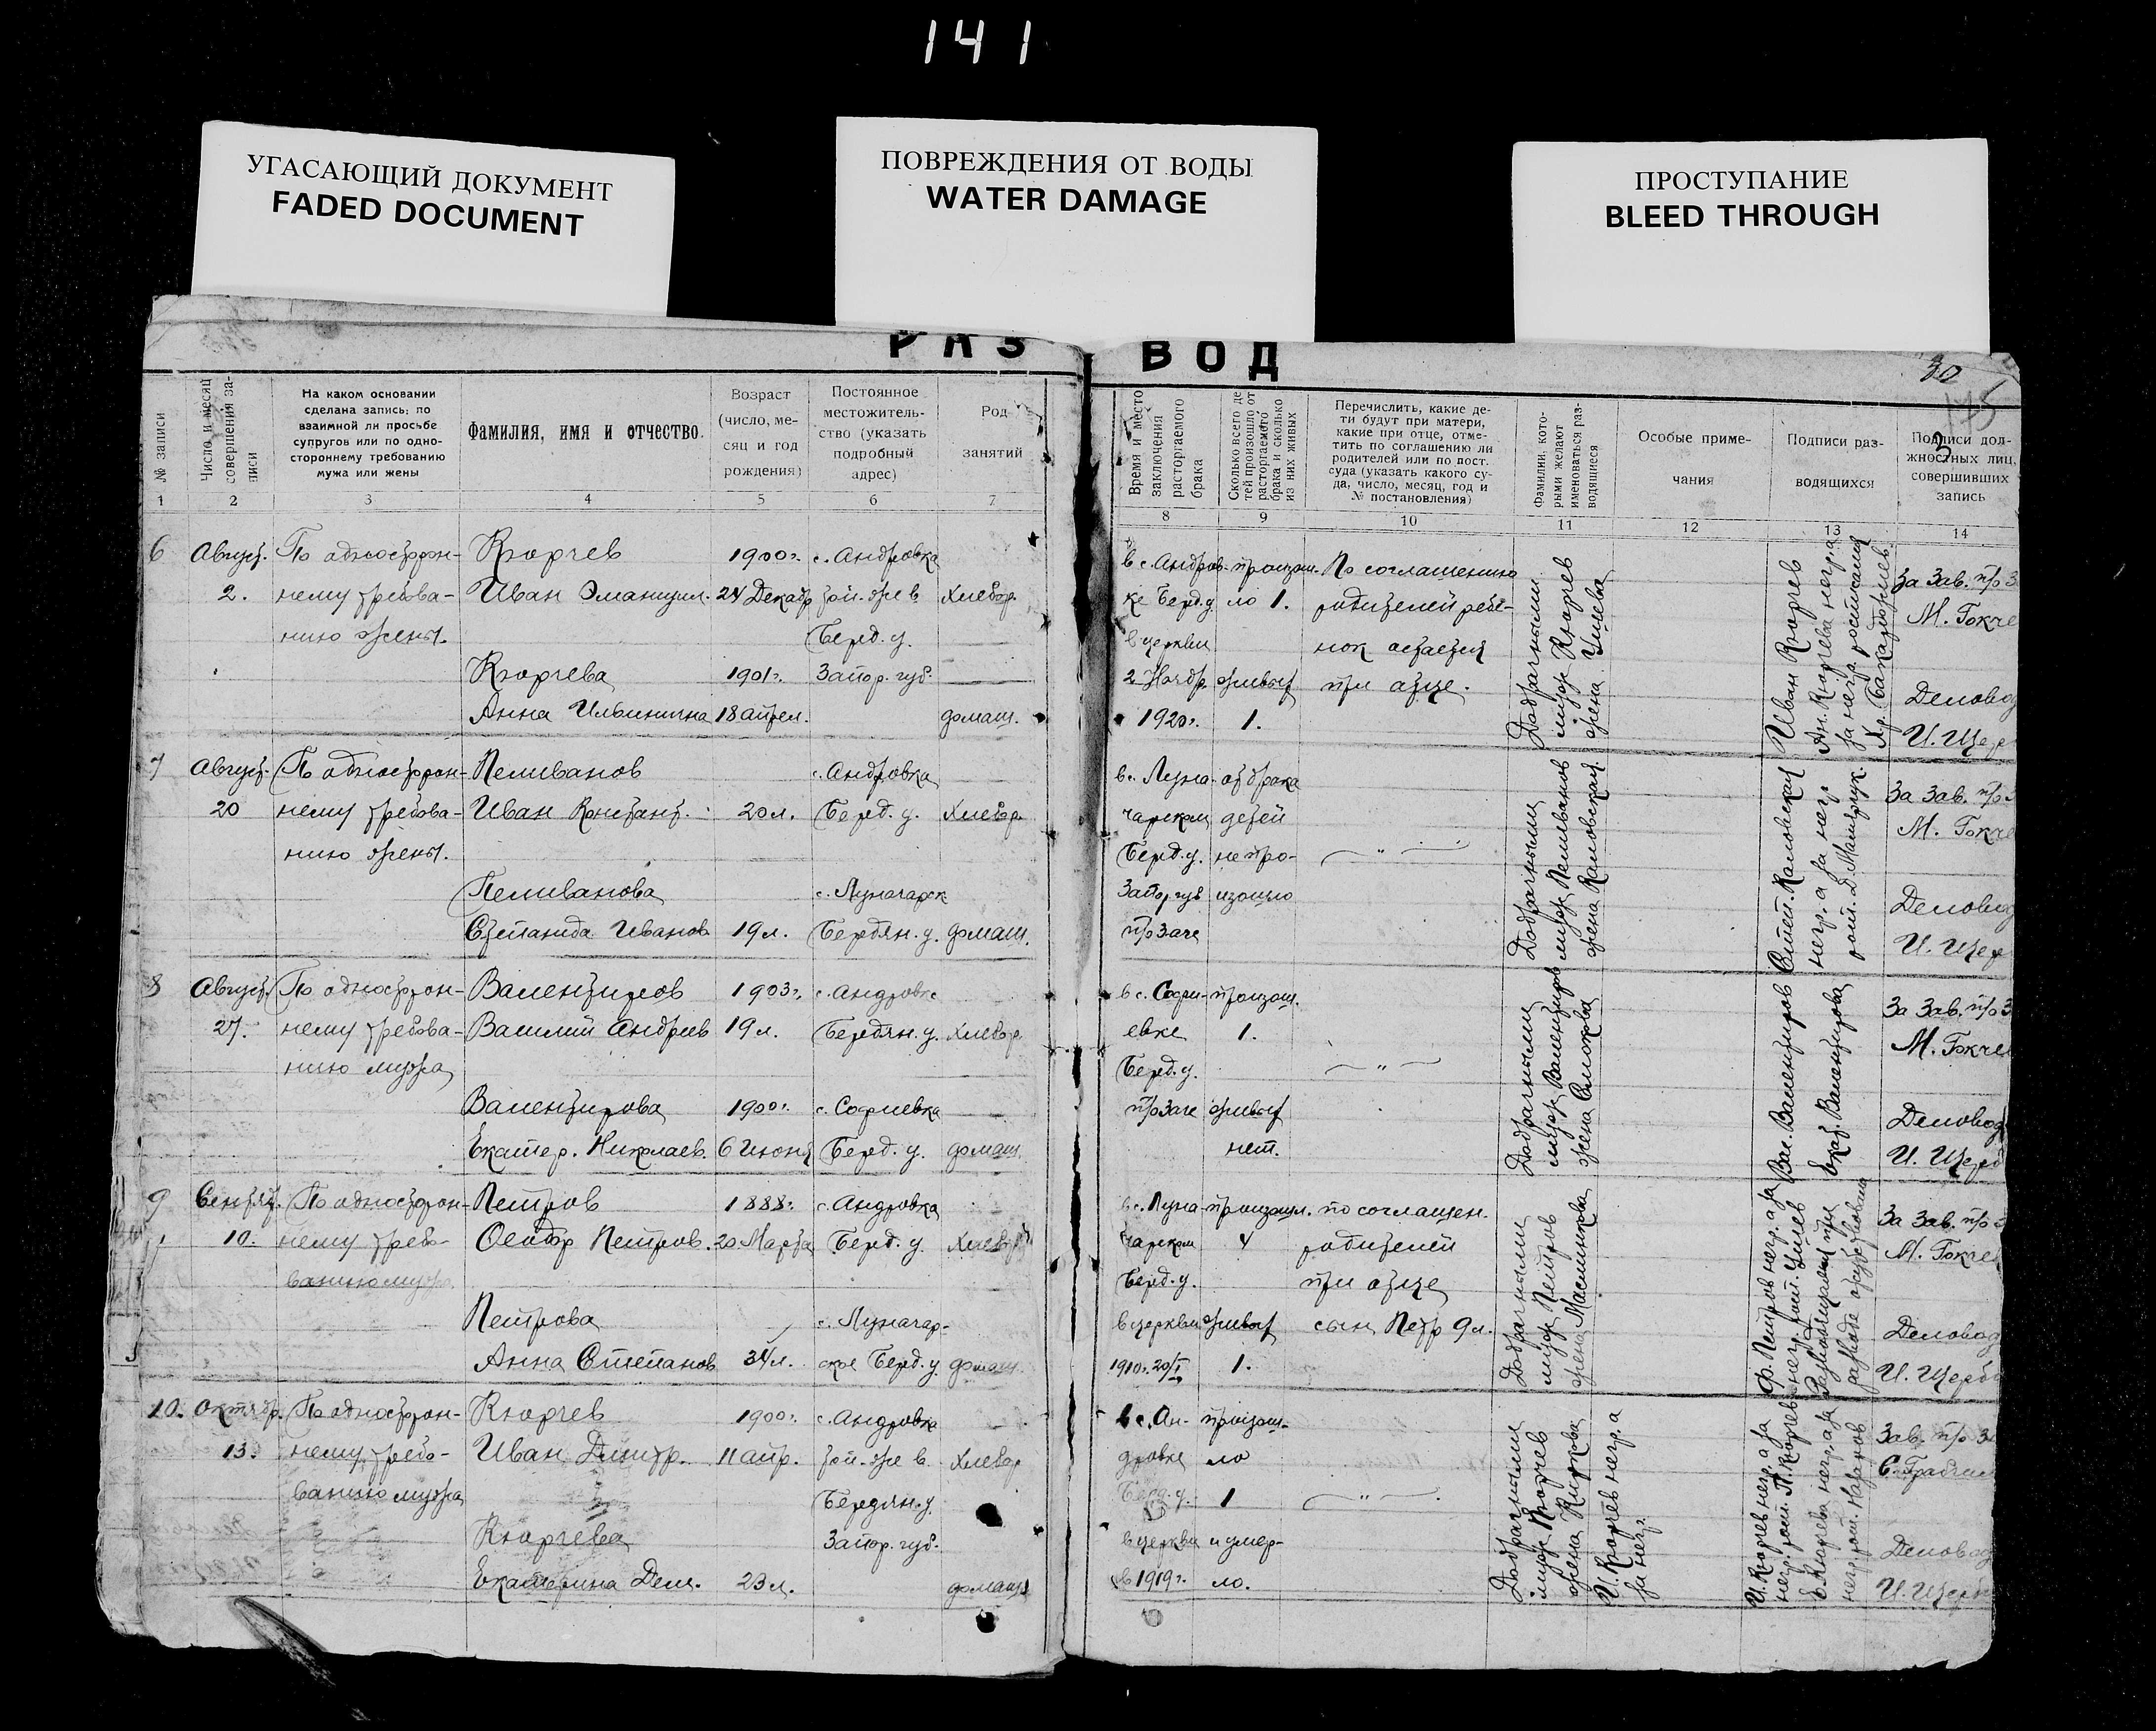 141
УГАСАЮЩИЙ ДОКУМЕНТ
FADED DOCUMENT
ПОВРЕЖДЕНИЯ ОТ ВОДЫ
WATER DAMAGE
ПРОСТУПАНИЕ
BLEED THROUGH
РАЗ
ВОД
30
175
3
№ записи
Число и месяц
совершения за-
писи
На каком основании
сделана запись: по
взаимной ли просьбе
супругов или по одно-
стороннему требованию
мужа или жены
Фамилия, имя и отчество.
Возраст
(число, ме-
сяц и год
рождения)
Постоянное
местожитель-
ство (указать
подробный
адрес)
Род
занятий
1
2
3
4
5
6
7
Время и место
заключения
расторгаемого
брака
Сколько всего де
тей произошло от
расторгаемого
брака и сколько
из них живых
Перечислить, какие де-
ти будут при матери,
какие при отце, отме-
тить по соглашению ли
родителей или по пост.
суда (указать какого су-
да, число, месяц, год и
№ постановления)
Фамилии, кото-
рыми желают
именоваться раз-
водящиеся
Особые приме-
чания
Подписи раз-
водящихся
Подписи дол-
жностных лиц,
совершивших
запись
8
9
10
11
12
13
14
6
Август.
2.
По односторон-
нему требова-
нию жены.
Кюрчев
Иван Эмануил.
Кюрчева
Анна Ильинична
1900 г.
24 Декабр
1901 г.
18 апрел.
с. Андровка
той-же в.
Берд. у.
Запор. губ.
Хлебор.
домаш.
в с. Андров-
ке Берд. у
в церкви
2 Ноябр.
1920 г.
произош-
ло 1.
живых
1.
По соглашению
родителей ребе-
нок остается
при отце.
Добрачными
муж Кюрчев
жена Учиева
Иван Кюрчев
Ан. Кюрчева негр. а
за негр. ростисался
За Зав. п/о З
М. Гокче
Деловод
И. Щер
7
Август.
20
По односторон-
нему требова-
нию жены.
Пеливанов
Иван Констант.
Пеливанова
Степанида Иванов
20 л.
19 л.
с. Андровка
Берд. у.
с. Луначарск
Бердян. у.
Хлебор.
домаш.
в с. Луна-
чарском
Берд. у.
Запор губ
п/о Загс
от брака
детей
не про-
изошло
— " —
Добрачными
муж Пеливанов
жена Каловская
Степ. Каловская
негр. а за негр.
За Зав. п/о З
М. Гокче
Деловод
И. Щер
8
Август.
27.
По односторон-
нему требова-
нию мужа
Валентиров
Василий Андреев
Валентирова
Екатер. Николаев.
1903 г.
19 л.
1900 г.
6 июня
с. Андровке
Бердян. у.
с. Софиевка
Берд. у.
хлебор
домаш.
в с. Софи-
евке
Берд. у.
п/о Загс
произош.
1.
живых
нет.
— " —
Добрачными
муж Валентиров
жена Смокова
Вас. Валентиров
Екат. Валентирова
За Зав. п/о З
М. Гокчел
Деловод
И. Щерб
9
Сентяб.
10.
По односторон-
нему требо-
ванию мужа.
Петров
Феодор Петров.
Петрова
Анна Степанов
1888 г.
20 Марта
34 л.
с. Андровка
Берд. у.
с. Луначар-
ское Берд. у
Хлебор
домаш.
в с. Луна-
чарском
Берд. у.
в церкви
1910 г. 20/I
произошл.
4
живых
1.
по соглашен.
родителей
при отце
сын Петр 9 л.
Добрачными
муж Петров
жена Маслинкова
Ф. Петров негр. а за
негр. рост. Учиев
За Зав. п/о З
М. Гокчел
Деловод
И. Щерб
10.
Октябр.
13.
По односторон-
нему требо-
ванию мужа
Кюрчев
Иван Дмитр.
Кюрчева
Екатерина Дем.
1900 г.
11 апр.
23 л.
с. Андровка
той-же в.
Бердян. у
Запор. губ.
хлебор
домаш.
в с. Ан-
дровке
Берд. у.
в церкви
в 1919 г.
произош-
ло
1
и умер-
ло.
— " —
Добрачными
муж Кюрчев
жена Киркова
И. Кюрчев негр. а
за негр.
И. Кюрчев негр. а за
негр. рост. П. Кюрчев
Е. Кюрчева негр. а за
негр. рост. Казанов
Зав. п/о З
Деловод
И. Щерб